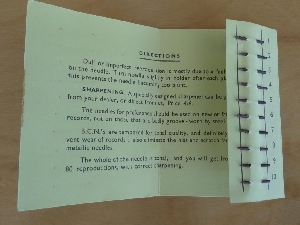 DIRECTIONS
Dull or imperfect reproduction is mostly due to a
on the needle. Turn needle slightly in holder after each
this prevents the needle becoming too blunt.
SHARPENING. A specially designed sharpener can be
from your dealer, or direct from us. Price
The needles for preference should be used on new or
records, not on records that are badly grooved worn by steel
B.C.N.'s are tempered for tonal quality, and definitely
vent wear of records, also eliminate the hiss and scratch
metallic needles.
The whole of the needle is tonal, and you will get from
80 reproductions, with correct sharpening.
1
2
3
4
5
6
7
8
9
10